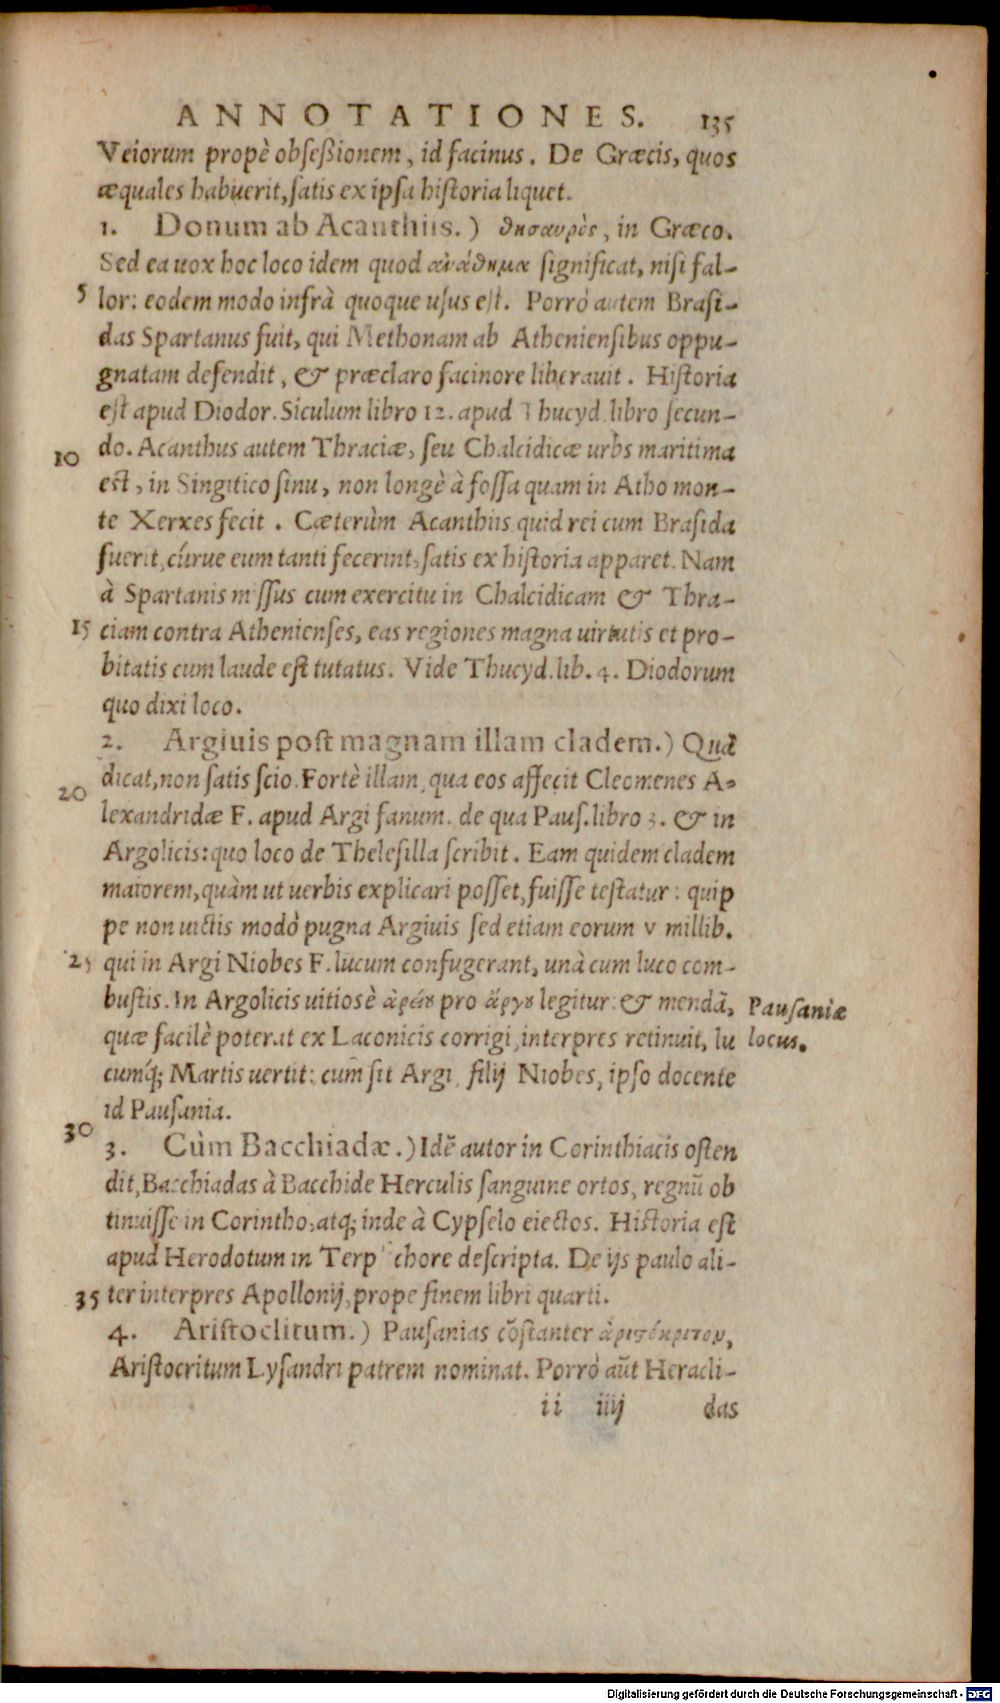 ANNOTATIONES. 135
Veiorum propè obseßionem, id facinus. De Græcis, quos
æquales habuerit, satis ex ipsa historia liquet.
1. Donum ab Acanthiis.) θησαυρὸς, in Græco.
Sed ea uox hoc loco idem quod ανάθημα significat, nisi fal-
5 lor: eodem modo infrà quoque usus est. Porrò autem Brasi-
das Spartanus fuit, qui Methonam ab Atheniensibus oppu-
gnatam defendit, & præclaro facinore liberauit. Historia
est apud Diodor. Siculum libro 12. apud Thucyd. libro secun-
10 do. Acanthus autem Thraciæ, seu Chalcidicæ urbs maritima
est, in Singitico sinu, non longè à fossa quam in Atho mon-
te Xerxes fecit. Cæterùm Acanthiis quid rei cum Brasida
fuerit, cúrue eum tanti fecerint, satis ex historia apparet. Nam
à Spartanis missus cum exercitu in Chalcidicam & Thra-
15 ciam contra Athenienses, eas regiones magna uirtutis et pro-
bitatis cum laude est tutatus. Vide Thucyd. lib. 4. Diodorum
quo dixi loco.
2. Argiuis post magnam illam cladem.) Quā
dicat, non satis scio. Fortè illam, qua eos affecit Cleomenes A-
20 lexandridæ F. apud Argi fanum. de qua Paus. libro 3. & in
Argolicis: quo loco de Thelesilla scribit. Eam quidem cladem
maiorem, quàm ut uerbis explicari posset, fuisse testatur: quip
pe non uictis modò pugna Argiuis sed etiam eorum v millib.
25 qui in Argi Niobes F. lucum confugerant, unà cum luco com-
bustis. In Argolicis uitiosè ἀρεως pro ἄργου legitur: & mendā,
Pausaniæ
quæ facilè poterat ex Laconicis corrigi, interpres retinuit, lu
locus.
cumq́; Martis uertit: cum sit Argi filij Niobes, ipso docente
id Pausania.
30 3. Cùm Bacchiadæ.) Idē autor in Corinthiacis osten
dit, Bacchiadas à Bacchide Herculis sanguine ortos, regnū ob
tinuisse in Corintho, atq; inde à Cypselo eiectos. Historia est
apud Herodotum in Terpsichore descripta. De ijs paulo ali-
35 ter interpres Apollonij, prope finem libri quarti.
4. Aristoclitum.) Pausanias cōstanter ἀριστόκριτον,
Aristocritum Lysandri patrem nominat. Porrò aūt Heracli-
ii iiij das
Digitalisierung gefördert durch die Deutsche Forschungsgemeinschaft - DFG